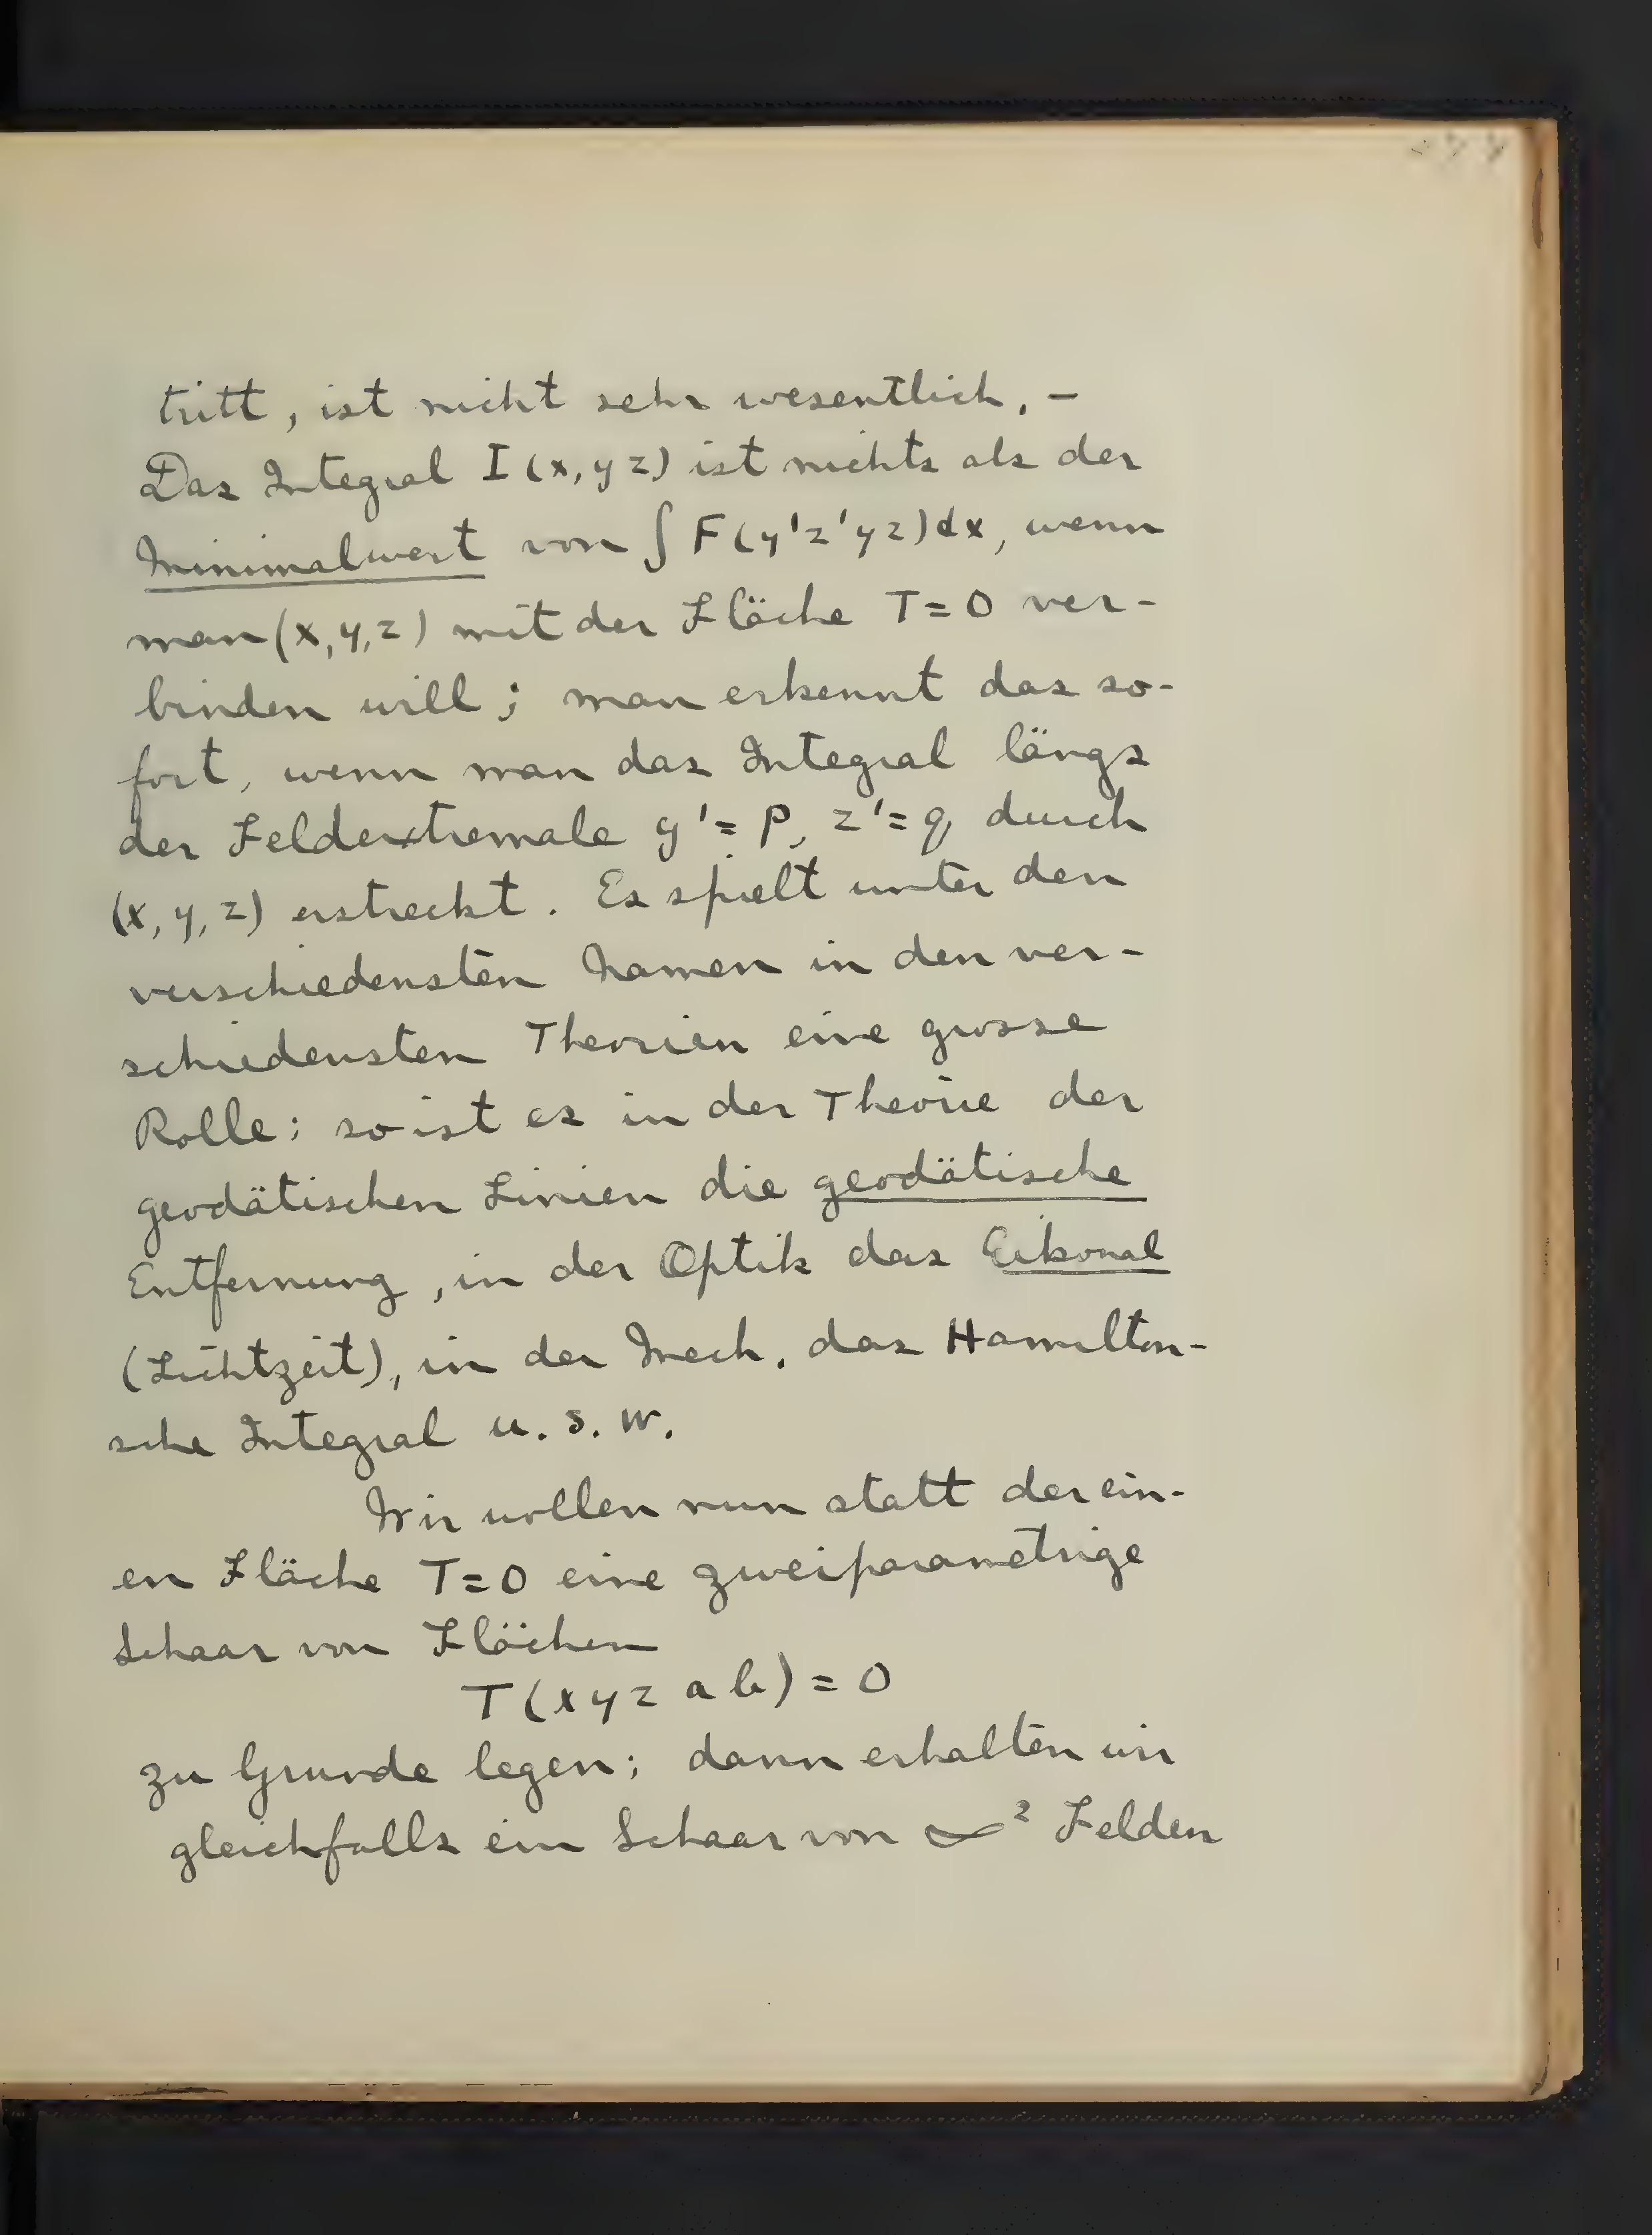 tritt, ist nicht sehr wesentlich. –
Das Integral I (x, y z) ist nichts als der
Minimalwert von ∫ F(y'z'yz)dx, wenn
man (x, y, z) mit der Fläche T = 0 ver-
binden will; man erkennt das so-
fort, wenn man das Integral längs
der Feldextremale y' = p, z' = q durch
(x, y, z) erstreckt. Es spielt unter den
verschiedensten Namen in den ver-
schiedensten Theorien eine grosse
Rolle: so ist es in der Theorie der
geodätischen Linien die geodätische
Entfernung, in der Optik das Eikonal
(Lichtzeit), in der Mech. das Hamilton-
sche Integral u. s. w.
Wir wollen nun statt der ein-
en Fläche T = 0 eine zweiparametrige
Schaar von Flächen
T (x y z a b) = 0
zu Grunde legen; dann erhalten wir
gleichfalls ein Schaar von ∞² Felden